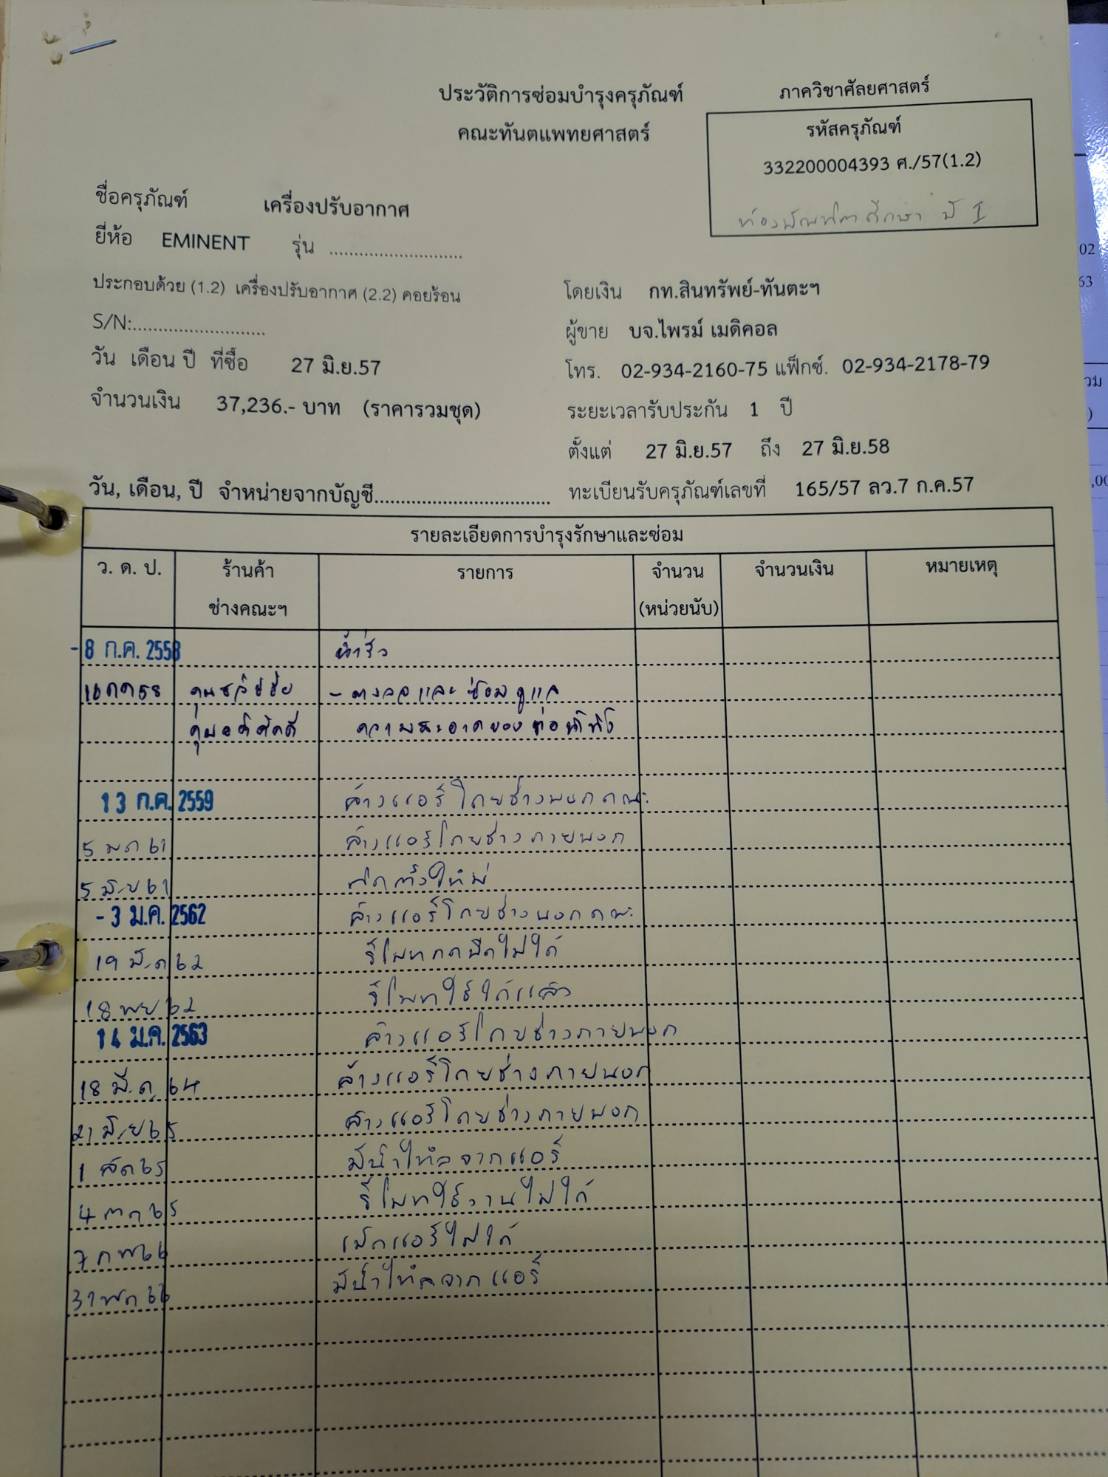 ประวัติการซ่อมบำรุงครุภัณฑ์
คณะทันตแพทยศาสตร์
ภาควิชาศัลยศาสตร์
รหัสครุภัณฑ์
332200004393 ศ./57(1.2)
ชื่อครุภัณฑ์ เครื่องปรับอากาศ
ยี่ห้อ EMINENT รุ่น ..........................
ประกอบด้วย (1.2) เครื่องปรับอากาศ (2.2) คอยร้อน
S/N:.........................
วัน เดือน ปี ที่ซื้อ 27 มิ.ย.57
จำนวนเงิน 37,236.- บาท (ราคารวมชุด)
โดยเงิน กท.สินทรัพย์-ทันตะฯ
ผู้ขาย บจ.ไพรม์ เมดิคอล
โทร. 02-934-2160-75 แฟ็กซ์. 02-934-2178-79
ระยะเวลารับประกัน 1 ปี
ตั้งแต่ 27 มิ.ย.57 ถึง 27 มิ.ย.58
วัน, เดือน, ปี จำหน่ายจากบัญชี................................ ทะเบียนรับครุภัณฑ์เลขที่ 165/57 ลว.7 ก.ค.57
รายละเอียดการบำรุงรักษาและซ่อม
ว. ด. ป. ร้านค้า ช่างคณะฯ รายการ จำนวน (หน่วยนับ) จำนวนเงิน หมายเหตุ
- 8 ก.ค. 2558 น้ำรั่ว
ความสะอาดของท่อน้ำทิ้ง
13 ก.ค. 2559 ล้างแอร์โดยช่างนอกคณะ
5 มค 61 ล้างแอร์โดยช่างภายนอก
5 มิย 61
- 3 ม.ค. 2562 ล้างแอร์โดยช่างนอกคณะ
19 มี.ค 62 รีโมทกดปิดไม่ได้
18 พย 62 รีโมทใช้ได้แล้ว
14 ม.ค. 2563 ล้างแอร์โดยช่างภายนอก
18 มี.ค. 64 ล้างแอร์โดยช่างภายนอก
21 มิย 65 ล้างแอร์โดยช่างภายนอก
1 สค 65 มีน้ำไหลจากแอร์
4 ตค 65 รีโมทใช้งานไม่ได้
7 กพ 66 เปิดแอร์ไม่ได้
31 พค 66 มีน้ำไหลจากแอร์